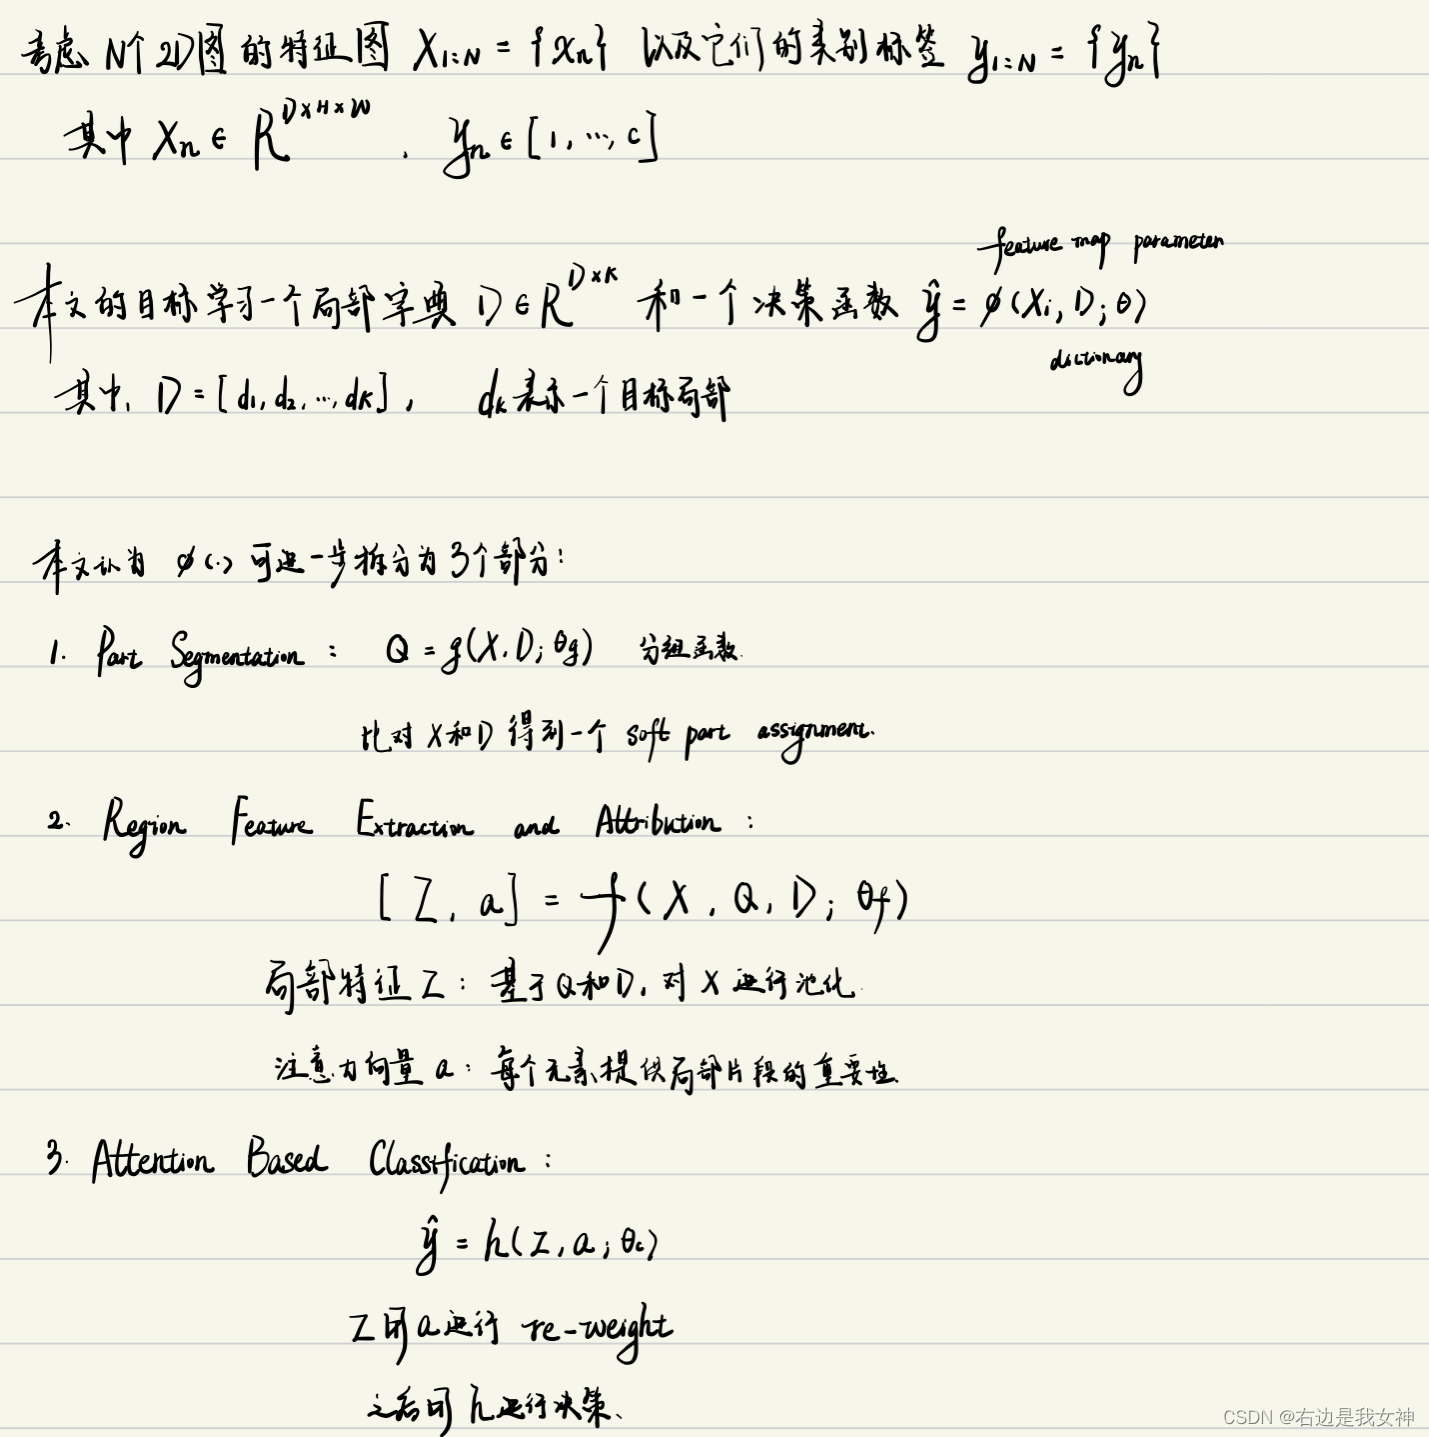 考虑 N个 2D图的特征图 X₁:N = {xn} 以及它们的类别标签 y₁:N = {yn}
其中 Xn ∈ R^{D×H×W} , yn ∈ [1, …, C]
feature map parameter
本文的目标学习一个局部字典 D ∈ R^{D×K} 和一个决策函数 ŷ = φ(Xi, D; θ)
dictionary
其中, D = [d₁, d₂, …, dK] , dk 表示一个目标局部
本文认为 φ(·) 可进一步拆分为 3个部分:
1. Part Segmentation : Q = g(X, D; θg) 分组函数.
比对 X和D 得到一个 soft part assignment.
2. Region Feature Extraction and Attribution :
[Z, a] = f(X, Q, D; θf)
局部特征 Z : 基于Q和D, 对 X 进行池化.
注意力向量 a : 每个元素提供局部片段的重要性.
3. Attention Based Classification :
ŷ = h(Z, a; θc)
Z 用 a 进行 re-weight
之后用 h 进行决策、
CSDN @右边是我女神